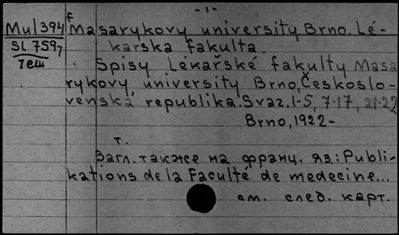 -1-
Mul394 Masarykovy university Brno. Lé-
SL7597 karska fakulta.
Teш
Spisy Lékařské fakulty Masa
rykovy university Brno, Českoslo-
venská republika. Svaz. 1-5, 7-17, 21-22
Brno, 1922-
т.
Загл. также на франц. яз.: Publi-
kations de la Faculté de medecine...
см. след. карт.